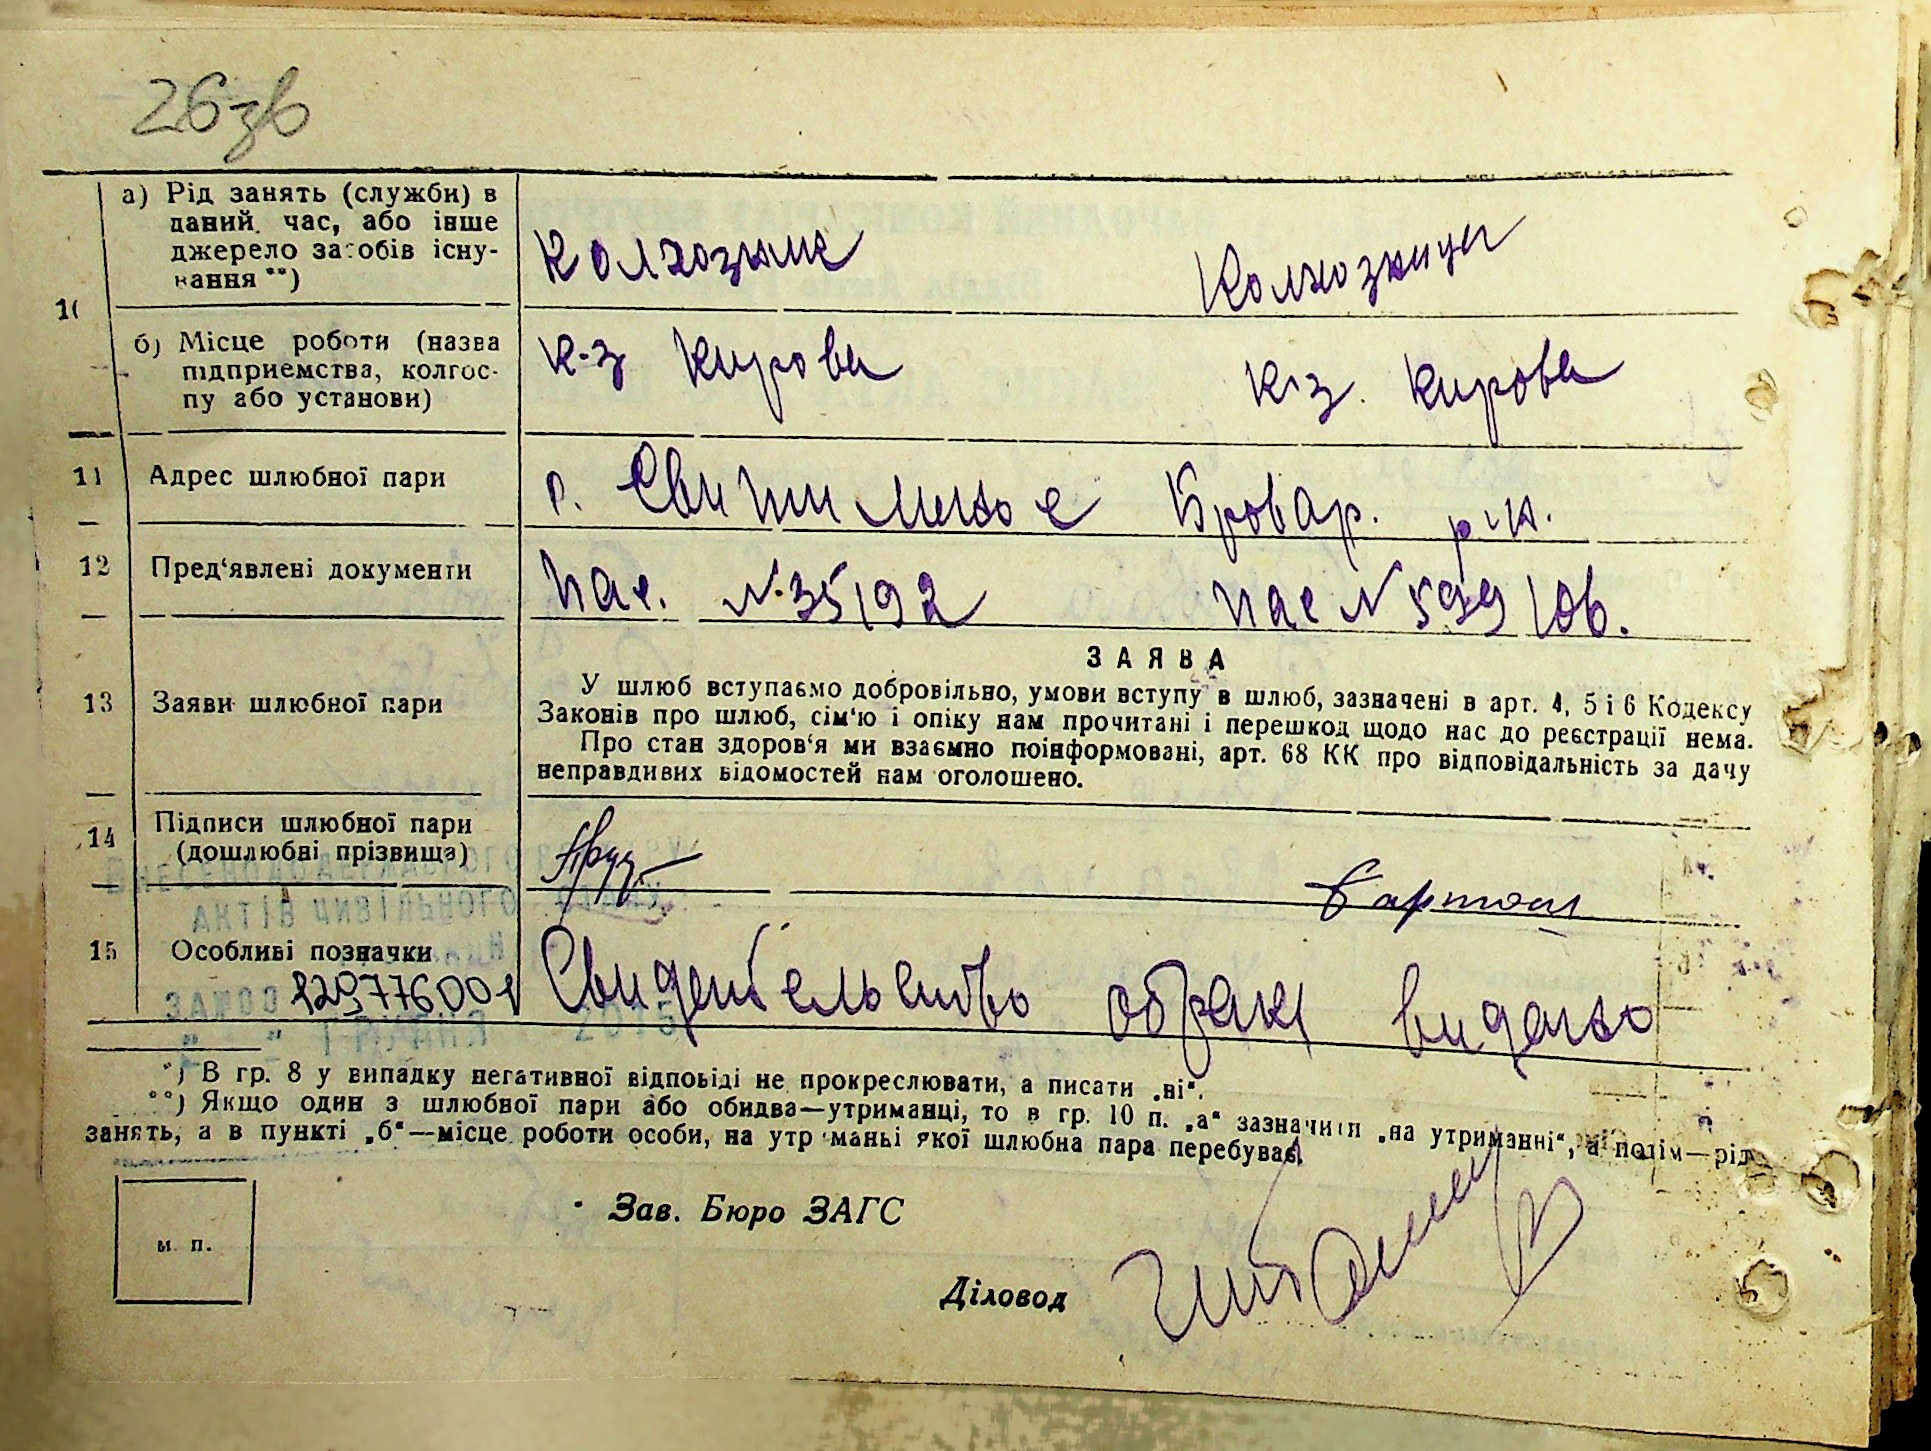 26зв
10
а) Рід занять (служби) в
даний час, або інше
джерело засобів існу-
вання **)
Колхозник
Колхозница
б) Місце роботи (назва
підприємства, колгос-
пу або установи)
к-з Кирова
к-з. Кирова
11 Адрес шлюбної пари
с. Світильное Бровар. р-н.
12 Пред‘явлені документи
пас. № 35192
пас № 599106.
13 Заяви шлюбної пари
ЗАЯВА
У шлюб вступаємо добровільно, умови вступу в шлюб, зазначені в арт. 4, 5 і 6 Кодексу
Законів про шлюб, сім‘ю і опіку нам прочитані і перешкод щодо нас до реєстрації нема.
Про стан здоров‘я ми взаємно поінформовані, арт. 68 КК про відповідальність за дачу
неправдивих відомостей нам оголошено.
14 Підписи шлюбної пари
(дошлюбні прізвища)
15 Особливі позначки
129776001
Свидетельство обрак видано
*) В гр. 8 у випадку негативної відповіді не прокреслювати, а писати „ні“.
**) Якщо один з шлюбної пари або обидва—утриманці, то в гр. 10 п. „а“ зазначити „на утриманні“, а потім—рід
занять, а в пункті „б“—місце роботи особи, на утриманні якої шлюбна пара перебуває.
м. п.
Зав. Бюро ЗАГС
Діловод